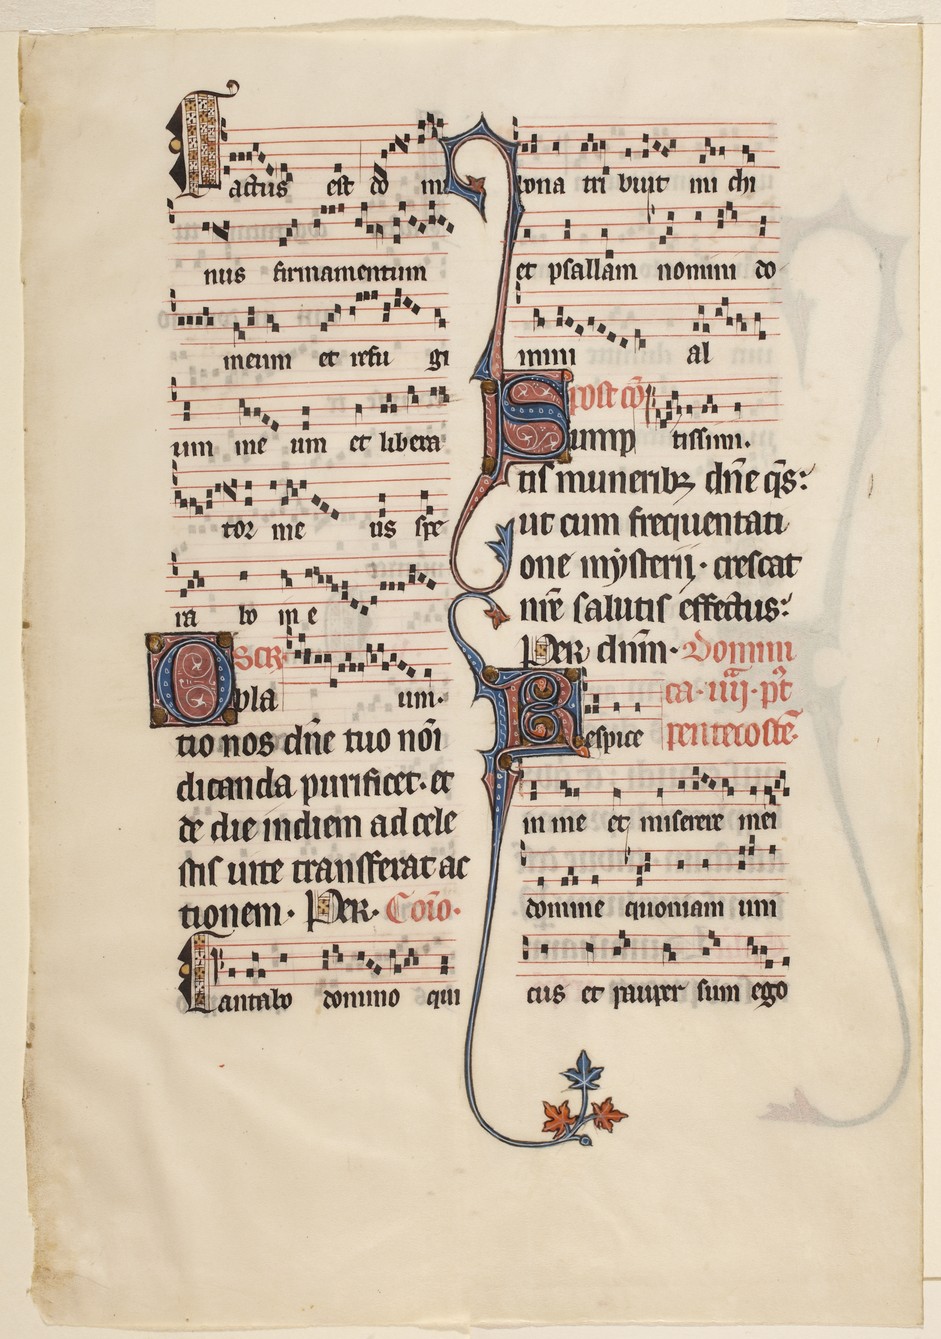 Factus est do mi
nus firmamentum
meum et refu gi
um me um et libera
tor me us spe
ra bo in e
um.
Secr
Obla
tio nos dn̄e tuo nōi
dicanda purificet. et
de die in diem ad cele
stis uite transferat ac
tionem. Per. Cōio.
Cantabo domino qui
bona tribuit mi chi
et psallam nomini do
mini al
tissimi.
post cō
Sump
tis muneribꝫ dn̄e qs̄:
ut cum frequentati
one mẏsterij. crescat
nr̄e salutis effectus:
Per dn̄m. Domini
ca. iiij. pt̄
pentecostē.
Respice
in me et miserere mei
domine quoniam uni
cus et pauper sum ego